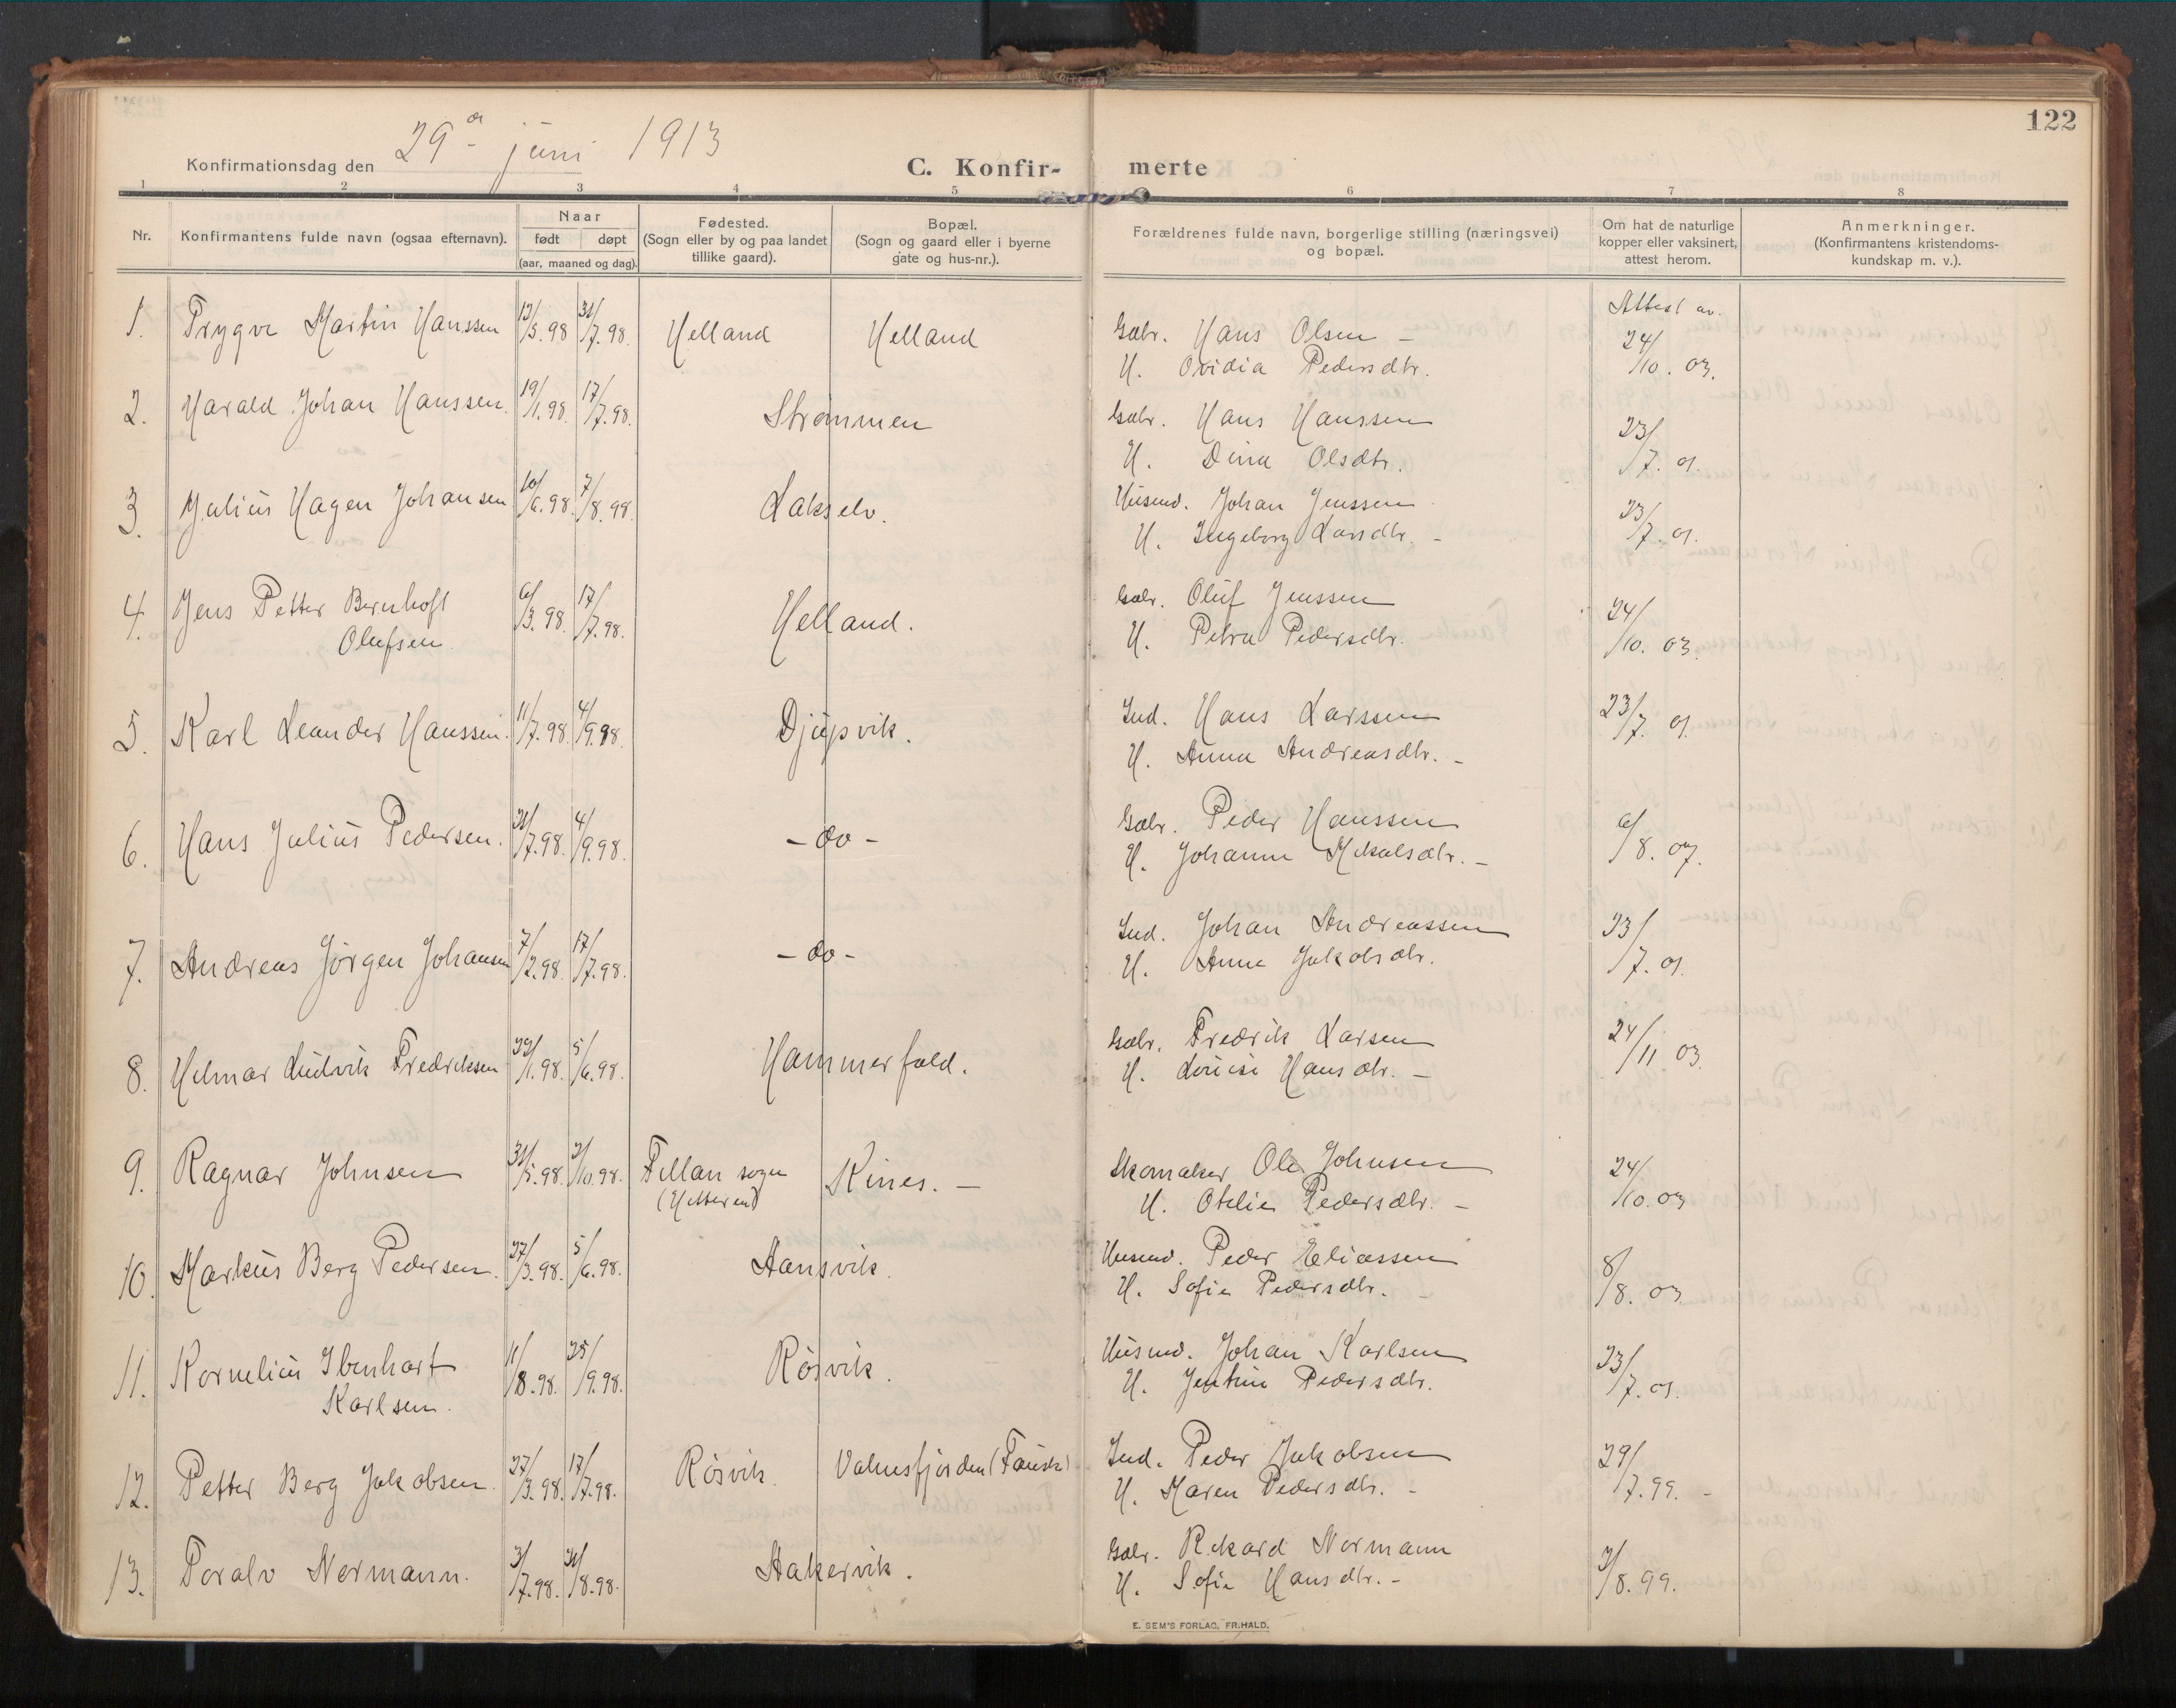 122
Konfirmationsdag den 29de juni 1913
C. Konfirmerte
1 2 3 4 5 6 7 8
Nr. Konfirmantens fulde navn (ogsaa efternavn). Naar født døpt (aar, maaned og dag). Fødested. (Sogn eller by og paa landet tillike gaard). Bopæl. (Sogn og gaard eller i byerne gate og hus-nr.). Forældrenes fulde navn, borgerlige stilling (næringsvei) og bopæl. Om hat de naturlige kopper eller vaksinert, attest herom. Anmerkninger. (Konfirmantens kristendoms-kundskap m. v.).
Attest av.
1. Trygve Martin Hanssen 13/5.98 31/7.98. Helland Helland Gbr. Hans Olsen - 24/10. 03.
H. Ovidia Pedersdtr.
2. Harald Johan Hanssen. 19/1.98 17/7.98. Strømmen Gbr. Hans Hanssen 23/7. 01.
H. Dina Olsdtr.
3. Julius Hagen Johansen 10/6.98. 7/8.98. Lakselv. Husmd. Johan Jenssen 23/7. 01.
H. Ingeborg Larsdtr. -
4. Jens Petter Bernhoft 6/3.98. 17/7.98. Helland. Gbr. Oluf Jenssen 24/10. 03.
Olufsen. H. Petra Pedersdtr.
5. Karl Leander Hanssen. 11/7.98. 4/9.98. Djupvik. Ind. Hans Larssen 23/7. 01.
H. Anna Andreasdtr. -
6. Hans Julius Pedersen. 31/7.98. 4/9.98. - do - Gbr. Peder Hanssen 6/8. 07.
H. Johanna Mikalsdtr. -
7. Andreas Jørgen Johansen 7/2.98. 17/7.98. - do - Ind. Johan Andreassen 23/7. 01.
H. Anna Jakobsdtr.
8. Hilmar Ludvik Fredriksen 22/1.98. 5/6.98. Hammerfald. Gbr. Fredrik Larsen 24/11 03.
H. Lovise Hansdtr. -
9. Ragnar Johnsen 31/5.98. 2/10.98. Fillan sogn Kines. - Skomaker Ole Johnsen 24/10. 03
(Hitteren) H. Otelie Pedersdtr. -
10. Markus Berg Pedersen. 27/3.98. 5/6.98. Aansvik. Husmd. Peder Eliassen 8/8. 03.
H. Sofie Pedersdtr. -
11. Kornelius Ibenhart 11/8.98. 25/9.98. Røsvik. Husmd. Johan Karlsen 23/7. 01.
Karlsen. H. Jentine Pedersdtr.
12. Petter Berg Jakobsen. 27/3.98. 17/7.98. Røsvik. Valnesfjorden (Fauske) Ind. Peder Jakobsen 29/7.99. -
H. Maren Pedersdtr. -
13. Toralv Normann. 3/7.98. 31/8.98. Stakervik. Gbr. Rikard Normann 3/8.99.
H. Sofie Hansdtr. -
E. SEM'S FORLAG, FR.HALD.